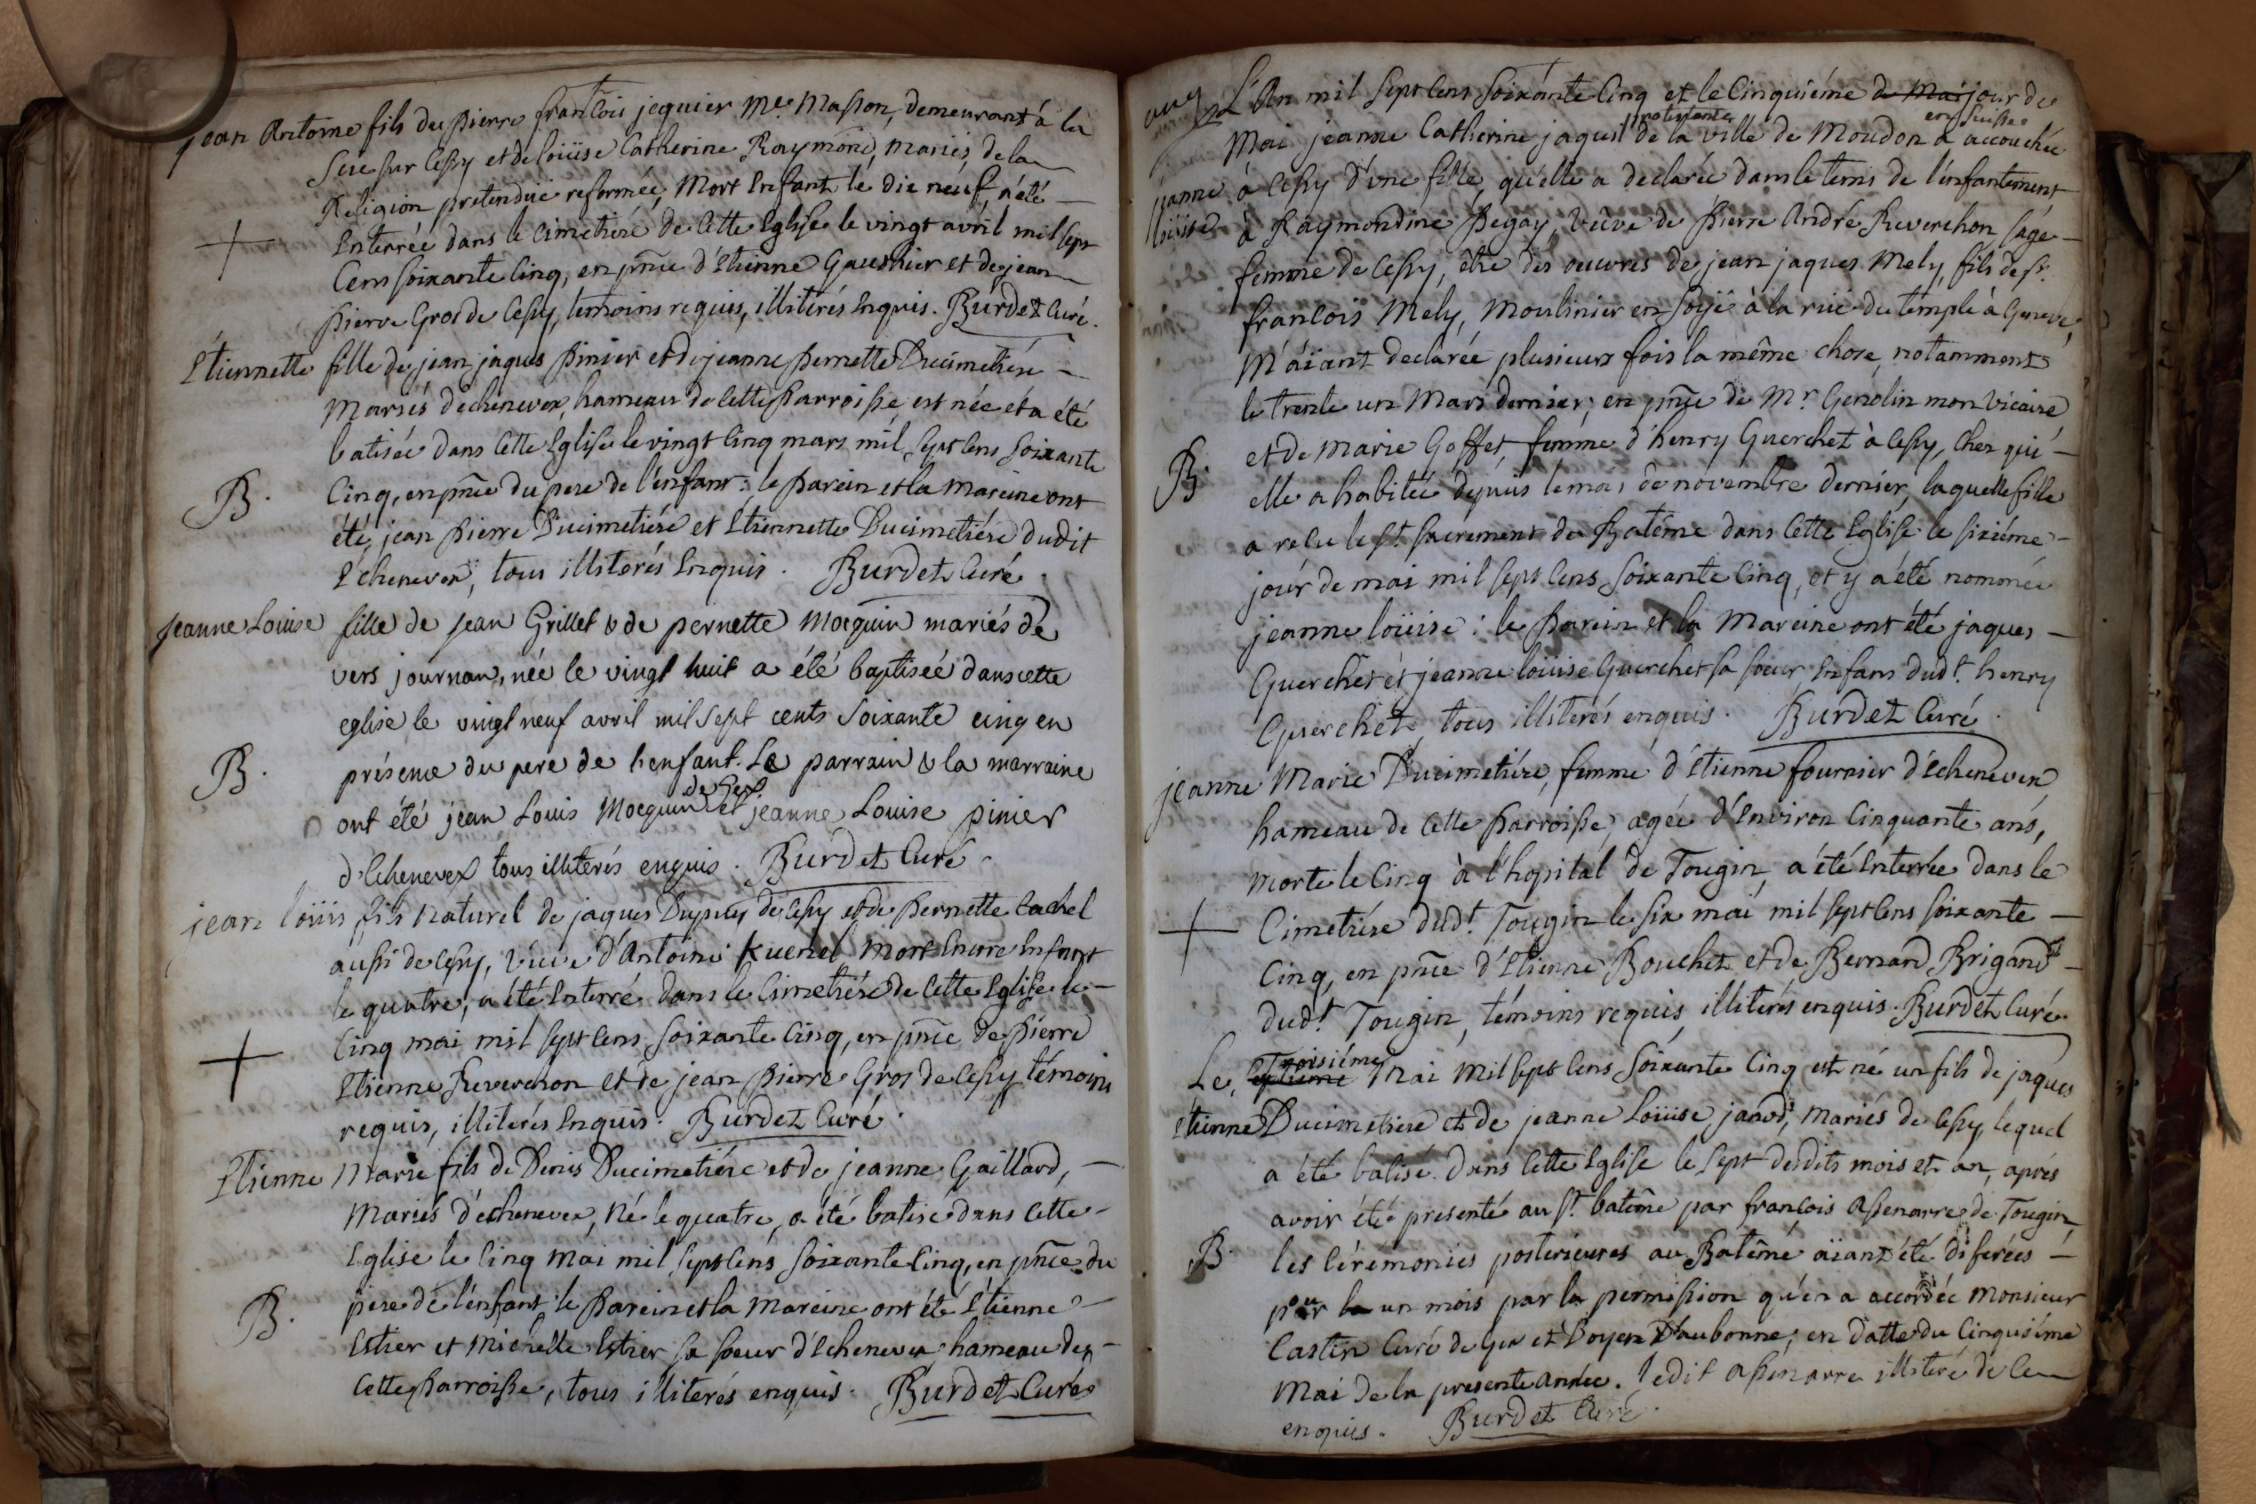 Jean Antoine fils de Pierre françois jequier Me. Masson, demeurant à la
Scie sur Cessy et de loüise Catherine Raymond, mariés, de la
Religion pretendüe reformée, Mort Enfant le dix neuf, a été
Enterrée dans le Cimetiére de Cette Eglise le vingt avril mil sept
Cens soixante Cinq, en pnce d'Etienne Gauthier et de jean
Pierre Gros de Cessy, temoins requis, illiterés Enquis. Burdet Curé.
Etiennette fille de jean jaques Pinier et de jeanne Pernette Ducimetiére
Mariés d'echenevex, hameau de Cette Parroisse est née et a été
batisée dans Cette Eglise le vingt Cinq mars mil sept Cens soixante
B. Cinq, en pnce du pere de l'enfant : le Parein et la Mareine ont
été, jean Pierre Ducimetiére et Etiennette Ducimetiére dudit
Echenevex, tous illiterés Enquis. Burdet Curé
Jeanne Louise fille de Jean Grillet & de pernette Mocquin mariés de
vers journan, née le vingt huit a été baptisée dans cette
eglise le vingt neuf avril mil sept cents soixante cinq en
B. présence du pere de l'enfant. Le parrain & la marraine
de Gex
ont été jean Louis Mocquin et jeanne Louise pinier
d'Echenevex tous illiterés enquis. Burdet Curé.
jean loüis fils naturel de jaques Dupuy de Cessy et de Pernette Cachel
aussi de Cessy, veuve d'Antoine Kuenel mort Encore Enfant
le quatre, a été Enterré dans le Cimetiére de Cette Eglise le
Cinq mai mil sept Cens soixante Cinq, en pnce de Pierre
Etienne Reverchon et de jean Pierre Gros de Cessy témoins
requis, illiterés Enquis. Burdet Curé.
Etienne Marie fils de Denis Ducimetiére et de jeanne Gaillard,
Mariés d'echenevex, Né le quatre, a été batisé dans Cette
Eglise le Cinq Mai mil sept Cens soixante Cinq, en pnce du
B. pere de l'enfant le Parein et la Mareine ont été Etienne
Estier et Michelle Estier sa soeur d'Echenevex hameau de
Cette Parroisse, tous illiterés enquis. Burdet Curé
L'An mil sept Cens soixante Cinq et le Cinquiéme de Mai jour de
protestante en Suisse
Mai jeanne Catherine jaquet de la ville de Moudon a accouchée
jeanne loüise à Cessy d'une fille, qu'elle a declarée dans le tems de l'enfantement
à Raymondine Pegay, veuve de Pierre André Reverchon sage
femme de Cessy, être des oeuvres de jean jaques Mely, fils de Sr.
françois Mely, Moulinier en soÿe à la rüe du temple à Geneve
M'aïant declarée plusieurs fois la même chose, notamment
le trente un Mars dernier; en pnce de Mr. Genolin mon vicaire
et de Marie Goffet, femme d'henry Guerchet à Cessy, Chez qui
B. elle a habitée depuis le mois de novembre dernier, laquelle fille
a reçu le St. sacrement de Batême dans Cette Eglise le sixiéme
jour de mai mil sept Cens soixante Cinq, et y a été nommée
jeanne loüise : le Parein et la Mareine ont été jaques
Guerchet et jeanne loüise Guerchet sa soeur Enfans dudt. henry
Guerchet, tous illiterés enquis. Burdet Curé.
jeanne Marie Ducimetiére, femme d'Etienne fournier d'Echenevex
hameau de Cette Parroisse, agée d'Environ Cinquante ans,
morte le Cinq à l'hopital de Tougin, a été Enterrée dans le
Cimetiére dudt. Tougin le six mai mil sept Cens soixante
Cinq, en pnce d'Etienne Bouchet et de Bernard Brigand
dudt. Tougin, témoins requis, illiterés enquis. Burdet Curé.
Troisiéme
Le Mai mil sept Cens soixante Cinq est né un fils de jaques
Etienne Ducimetiere et de jeanne Loüise Mariés de Cessy, lequel
a été batisé dans Cette Eglise le sept desdits mois et an, aprés
avoir été presenté au St. batême par françois Assenarre de Tougin
B. les Cérémonies posterieures au Batême aïant été diferées
pour un mois par la permission qu'en a accordée Monsieur
Castin Curé de Gex et Doyen D'aubonne; en datte du Cinquiéme
Mai de la presente année. Ledit Assenarre illiteré de Ce
enquis. Burdet Curé.